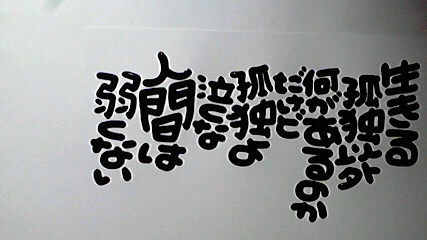 生きる
孤独以外
何があるのか
だけど
孤独よ
泣くな
人間は
弱くない